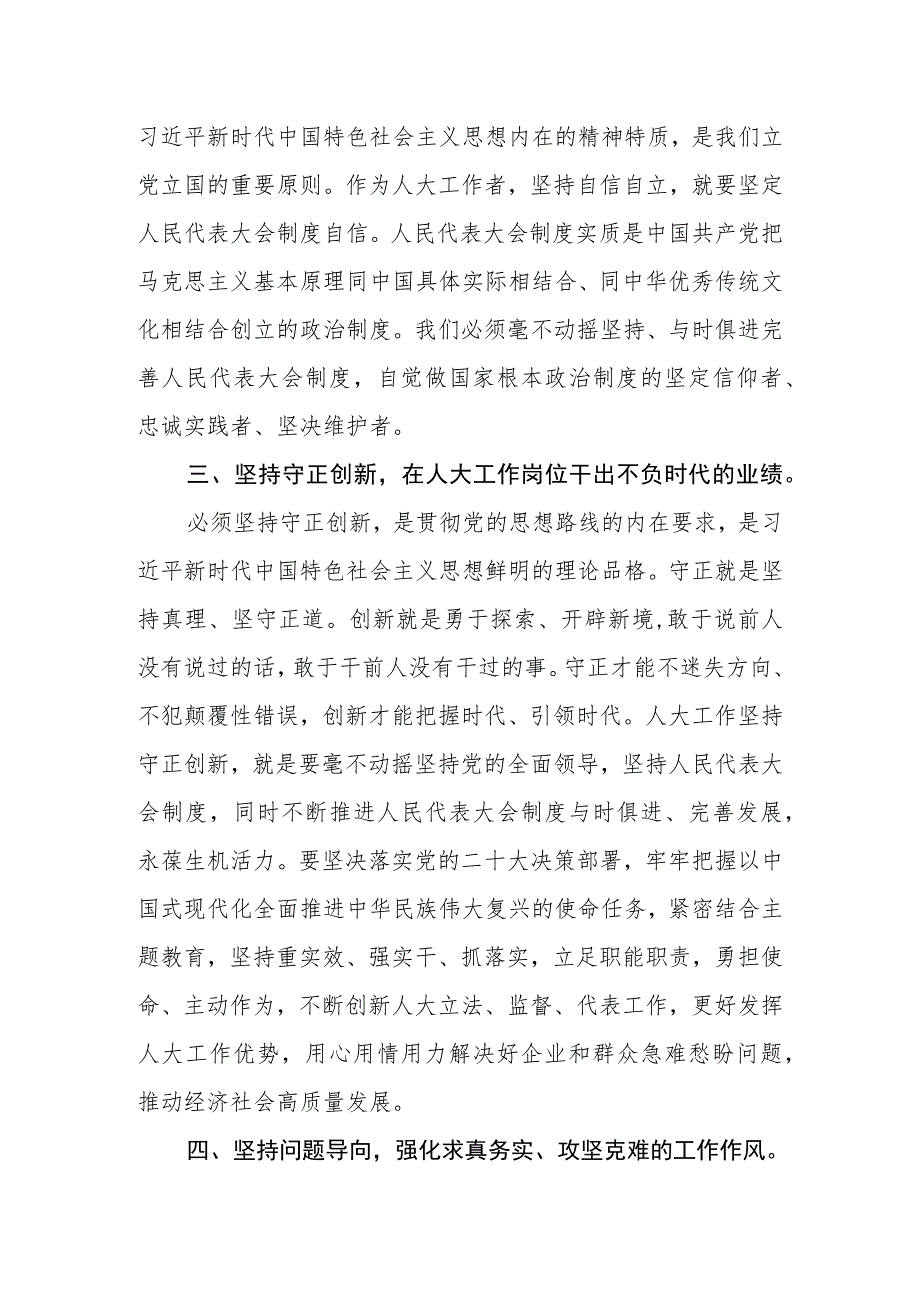 习近平新时代中国特色社会主义思想内在的精神特质，是我们立
党立国的重要原则。作为人大工作者，坚持自信自立，就要坚定
人民代表大会制度自信。人民代表大会制度实质是中国共产党把
马克思主义基本原理同中国具体实际相结合、同中华优秀传统文
化相结合创立的政治制度。我们必须毫不动摇坚持、与时俱进完
善人民代表大会制度，自觉做国家根本政治制度的坚定信仰者、
忠诚实践者、坚决维护者。
三、坚持守正创新，在人大工作岗位干出不负时代的业绩。
必须坚持守正创新，是贯彻党的思想路线的内在要求，是习
近平新时代中国特色社会主义思想鲜明的理论品格。守正就是坚
持真理、坚守正道。创新就是勇于探索、开辟新境,敢于说前人
没有说过的话,敢于干前人没有干过的事。守正才能不迷失方向、
不犯颠覆性错误，创新才能把握时代、引领时代。人大工作坚持
守正创新，就是要毫不动摇坚持党的全面领导，坚持人民代表大
会制度，同时不断推进人民代表大会制度与时俱进、完善发展，
永葆生机活力。要坚决落实党的二十大决策部署，牢牢把握以中
国式现代化全面推进中华民族伟大复兴的使命任务，紧密结合主
题教育，坚持重实效、强实干、抓落实，立足职能职责，勇担使
命、主动作为，不断创新人大立法、监督、代表工作，更好发挥
人大工作优势，用心用情用力解决好企业和群众急难愁盼问题，
推动经济社会高质量发展。
四、坚持问题导向，强化求真务实、攻坚克难的工作作风。